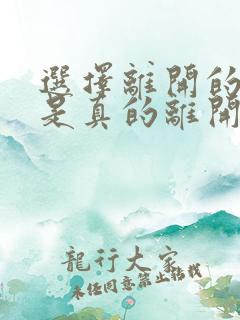 選擇離開的
是真的離開
龍行大家
未經同意禁止轉載